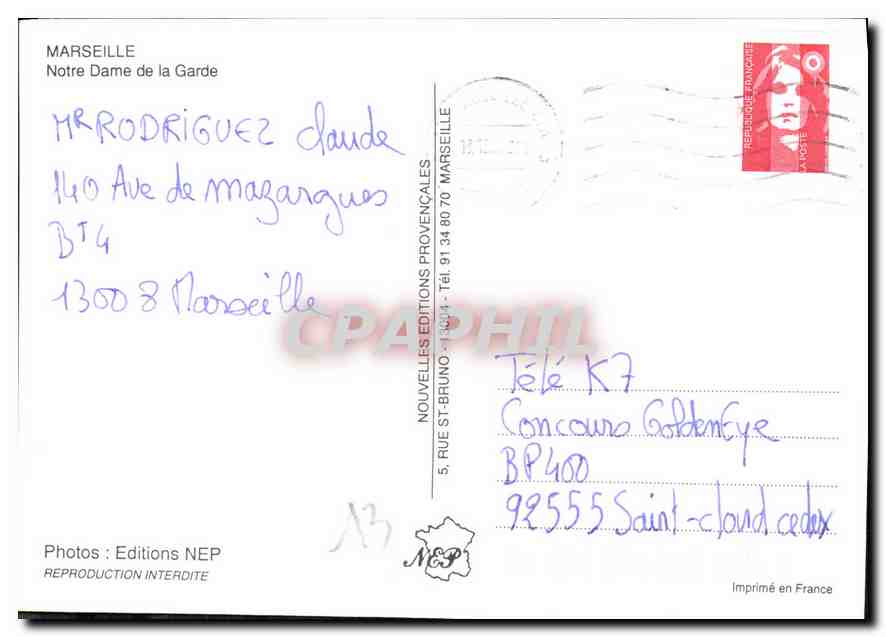 MARSEILLE
Notre Dame de la Garde
Mr RODRIGUEZ Claude
140 Ave de Mazargues
BT 4
13008 Marseille
NOUVELLES EDITIONS PROVENÇALES
5, RUE ST-BRUNO - 13004 - Tél. 91 34 80 70 MARSEILLE
REPUBLIQUE FRANÇAISE
LA POSTE
CPAPHIL
Télé K7
Concours GoldenEye
BP 400
92555 Saint-cloud cedex
13
NEP
Photos : Editions NEP
REPRODUCTION INTERDITE
Imprimé en France